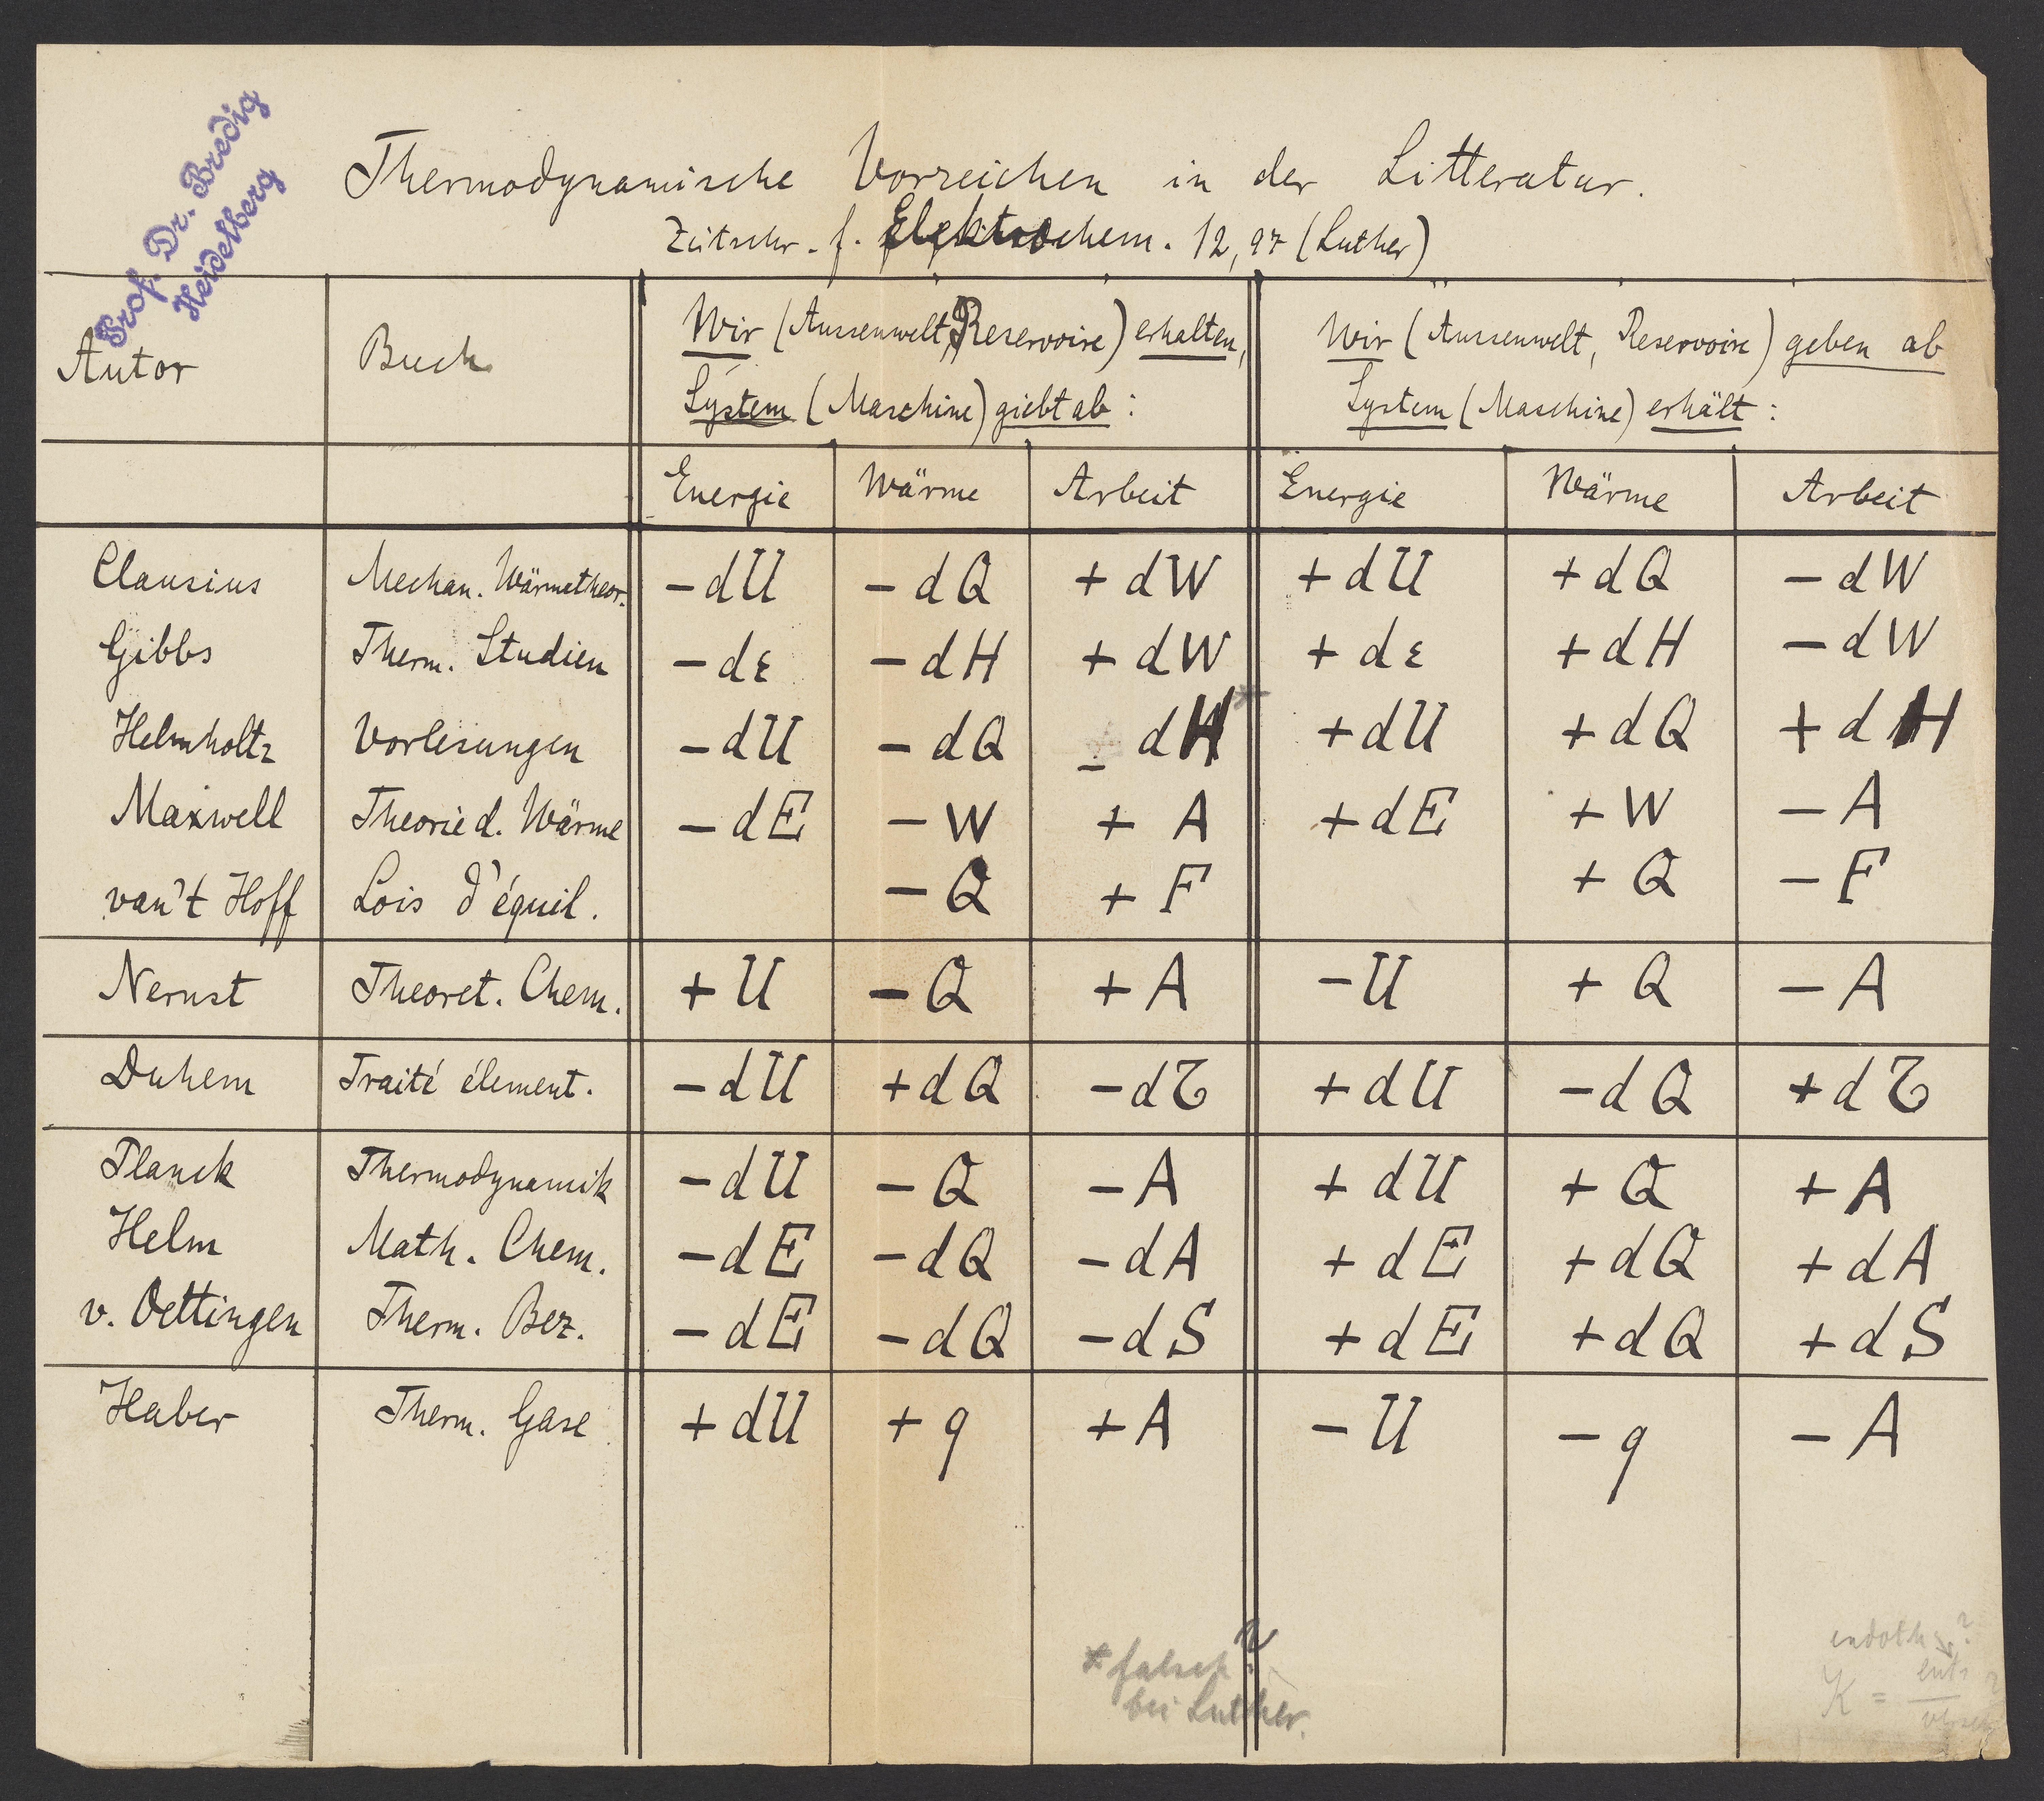 Prof. Dr. Bredig
Heidelberg
Thermodynamische Vorzeichen in der Litteratur.
Zeitschr. f. Elektrochem. 12, 97 (Luther)
Autor Buch Wir (Aussenwelt, Reservoire) erhalten, Wir (Aussenwelt, Reservoire) geben ab
System (Maschine) giebt ab: System (Maschine) erhält:
Energie Wärme Arbeit Energie Wärme Arbeit
Clausius Mechan. Wärmetheor. - dU - dQ + dW + dU + dQ - dW
Gibbs Therm. Studien - dε - dH + dW + dε + dH - dW
Helmholtz Vorlesungen - dU - dQ - dH* + dU + dQ + dH
Maxwell Theorie d. Wärme - dE - W + A + dE + W - A
van't Hoff Lois d'équil. - Q + F + Q - F
Nernst Theoret. Chem. + U - Q + A - U + Q - A
Duhem Traité élement. - dU + dQ - dτ + dU - dQ + dτ
Planck Thermodynamik - dU - Q - A + dU + Q + A
Helm Math. Chem. - dE - dQ - dA + dE + dQ + dA
v. Oettingen Therm. Bez. - dE - dQ - dS + dE + dQ + dS
Haber Therm. Gase + dU + q + A - U - q - A
* falsch?
bei Luther.
endoth ?
K =